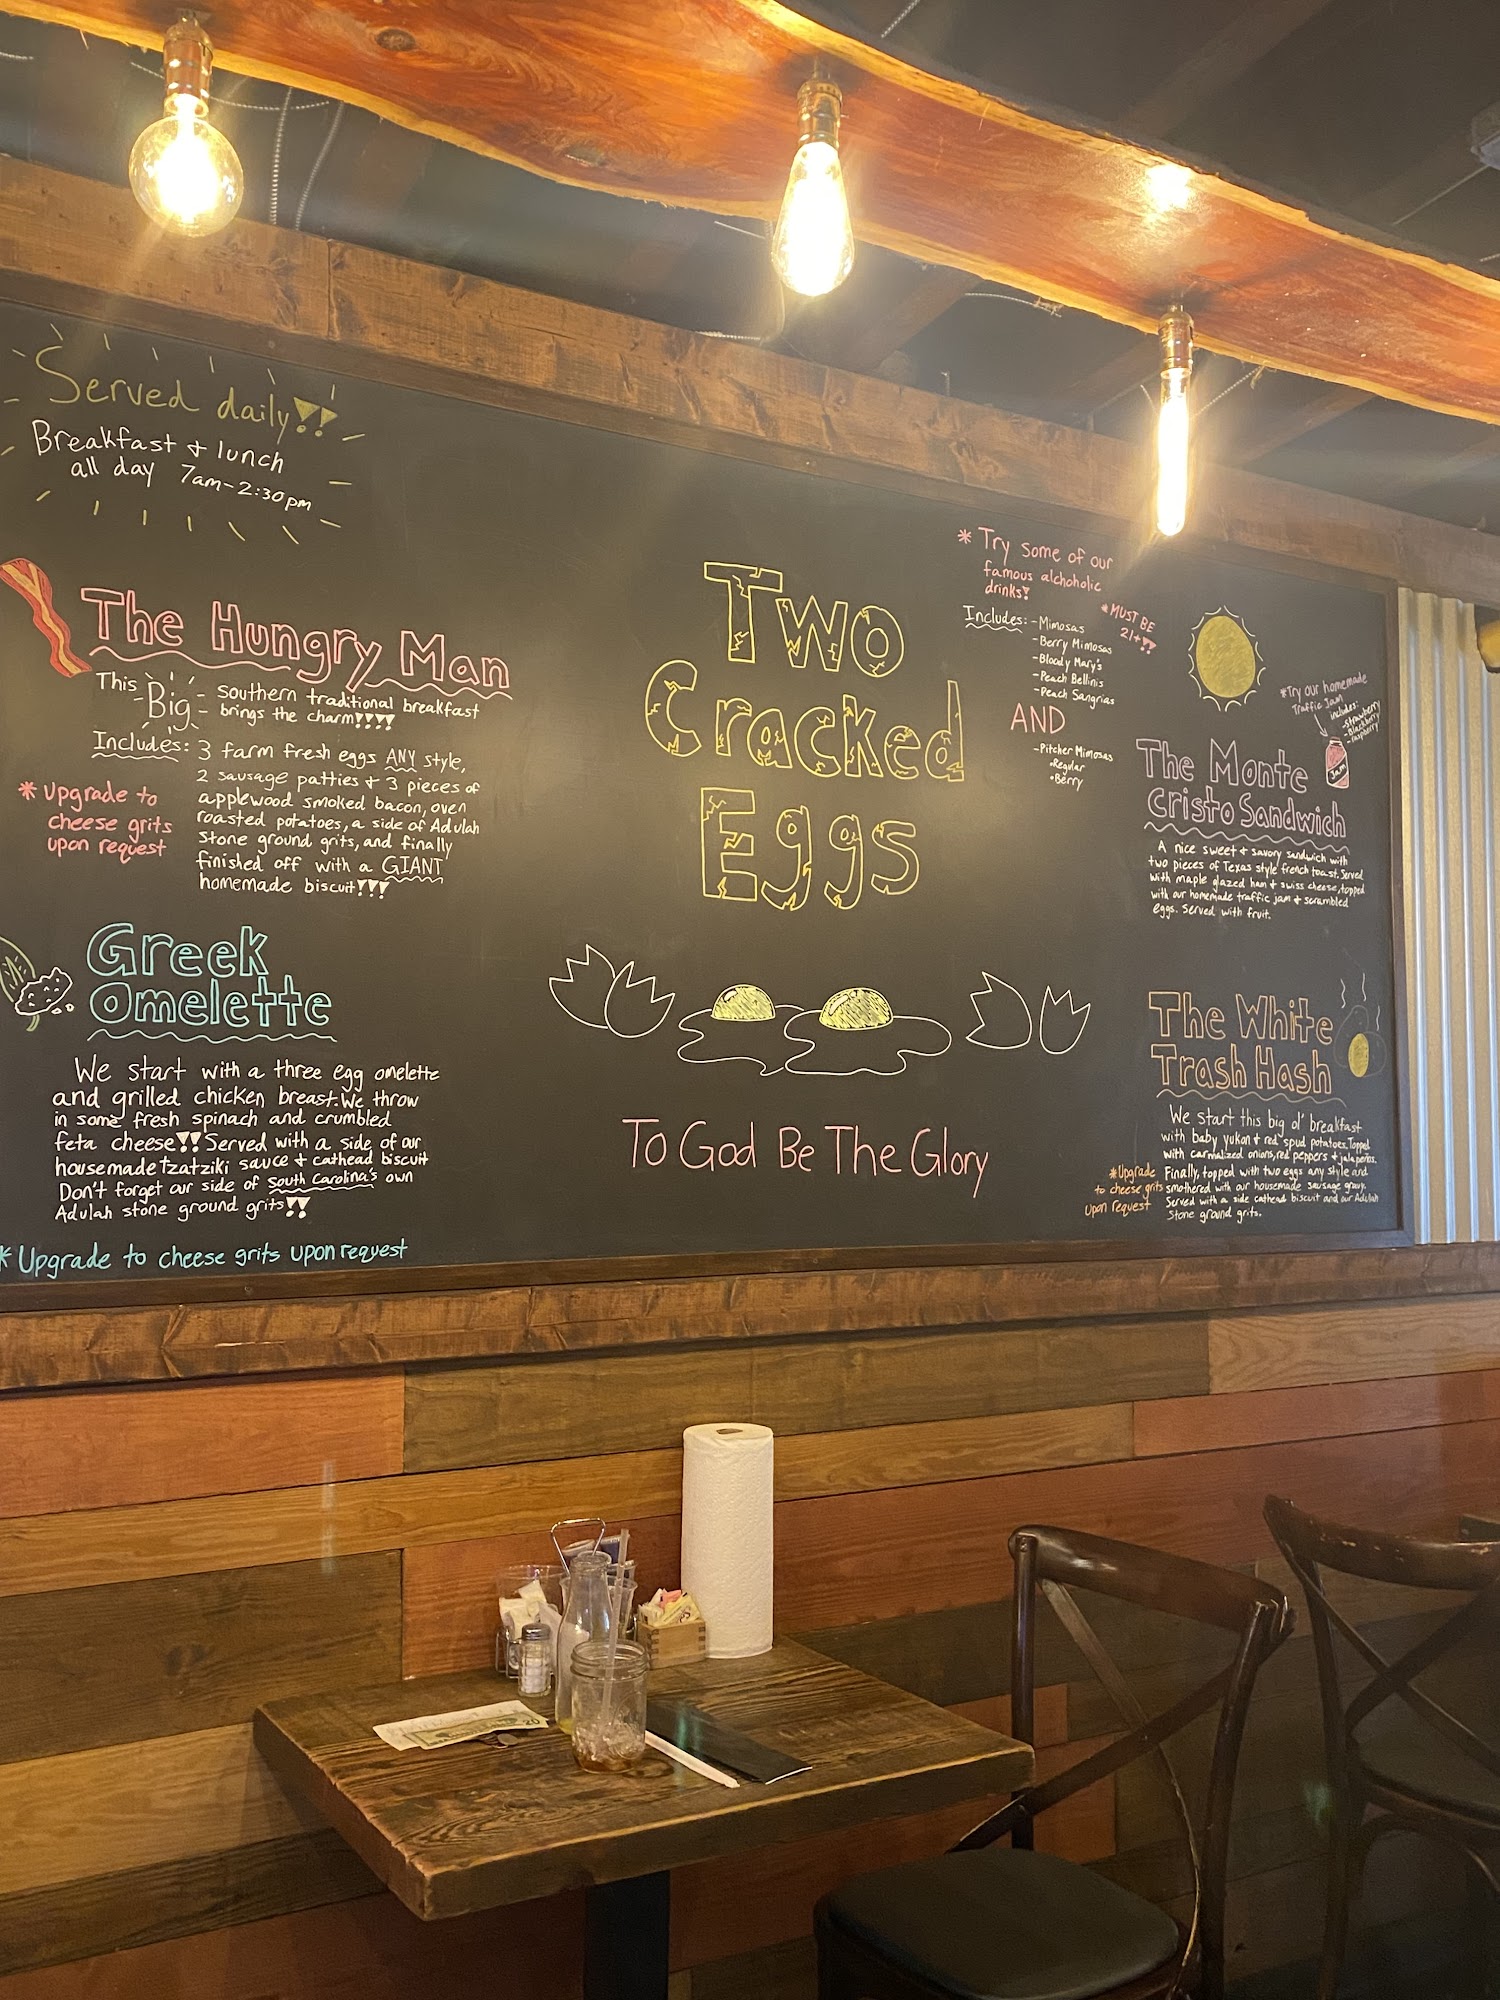 Served daily!!
Breakfast + lunch
all day 7am-2:30pm
The Hungry Man
This Big - southern traditional breakfast
- brings the charm!!!!
Includes: 3 farm fresh eggs ANY style,
2 sausage patties + 3 pieces of
applewood smoked bacon, oven
roasted potatoes, a side of Adulah
Stone ground grits, and finally
finished off with a GIANT
homemade biscuit!!!
* upgrade to
cheese grits
upon request
Greek
Omelette
We start with a three egg omelette
and grilled chicken breast. We throw
in some fresh spinach and crumbled
feta cheese!! Served with a side of our
housemade tzatziki sauce + cathead biscuit
Don't forget our side of South Carolina's own
Adulah stone ground grits!!
* Upgrade to cheese grits upon request
Two
Cracked
Eggs
To God Be The Glory
* Try some of our
famous alchoholic
drinks!
* MUST BE
21+!!
Includes: - Mimosas
- Berry Mimosas
- Bloody Mary's
- Peach Bellinis
- Peach Sangrias
AND
- Pitcher Mimosas
• Regular
• Berry
* Try our homemade
Traffic Jam
includes:
- strawberry
- Blackberry
- raspberry
Jam
The Monte
Cristo Sandwich
A nice sweet + savory sandwich with
two pieces of Texas style french toast. Served
with maple glazed ham + swiss cheese, topped
with our homemade traffic jam + scrambled
eggs. Served with fruit.
The White
Trash Hash
We start this big ol' breakfast
with baby yukon + red spud potatoes. Topped
with carmalized onions, red peppers + jalapeños.
Finally, topped with two eggs any style and
smothered with our housemade sausage gravy.
Served with a side cathead biscuit and our Adulah
Stone ground grits.
* Upgrade
to cheese grits
upon request
20